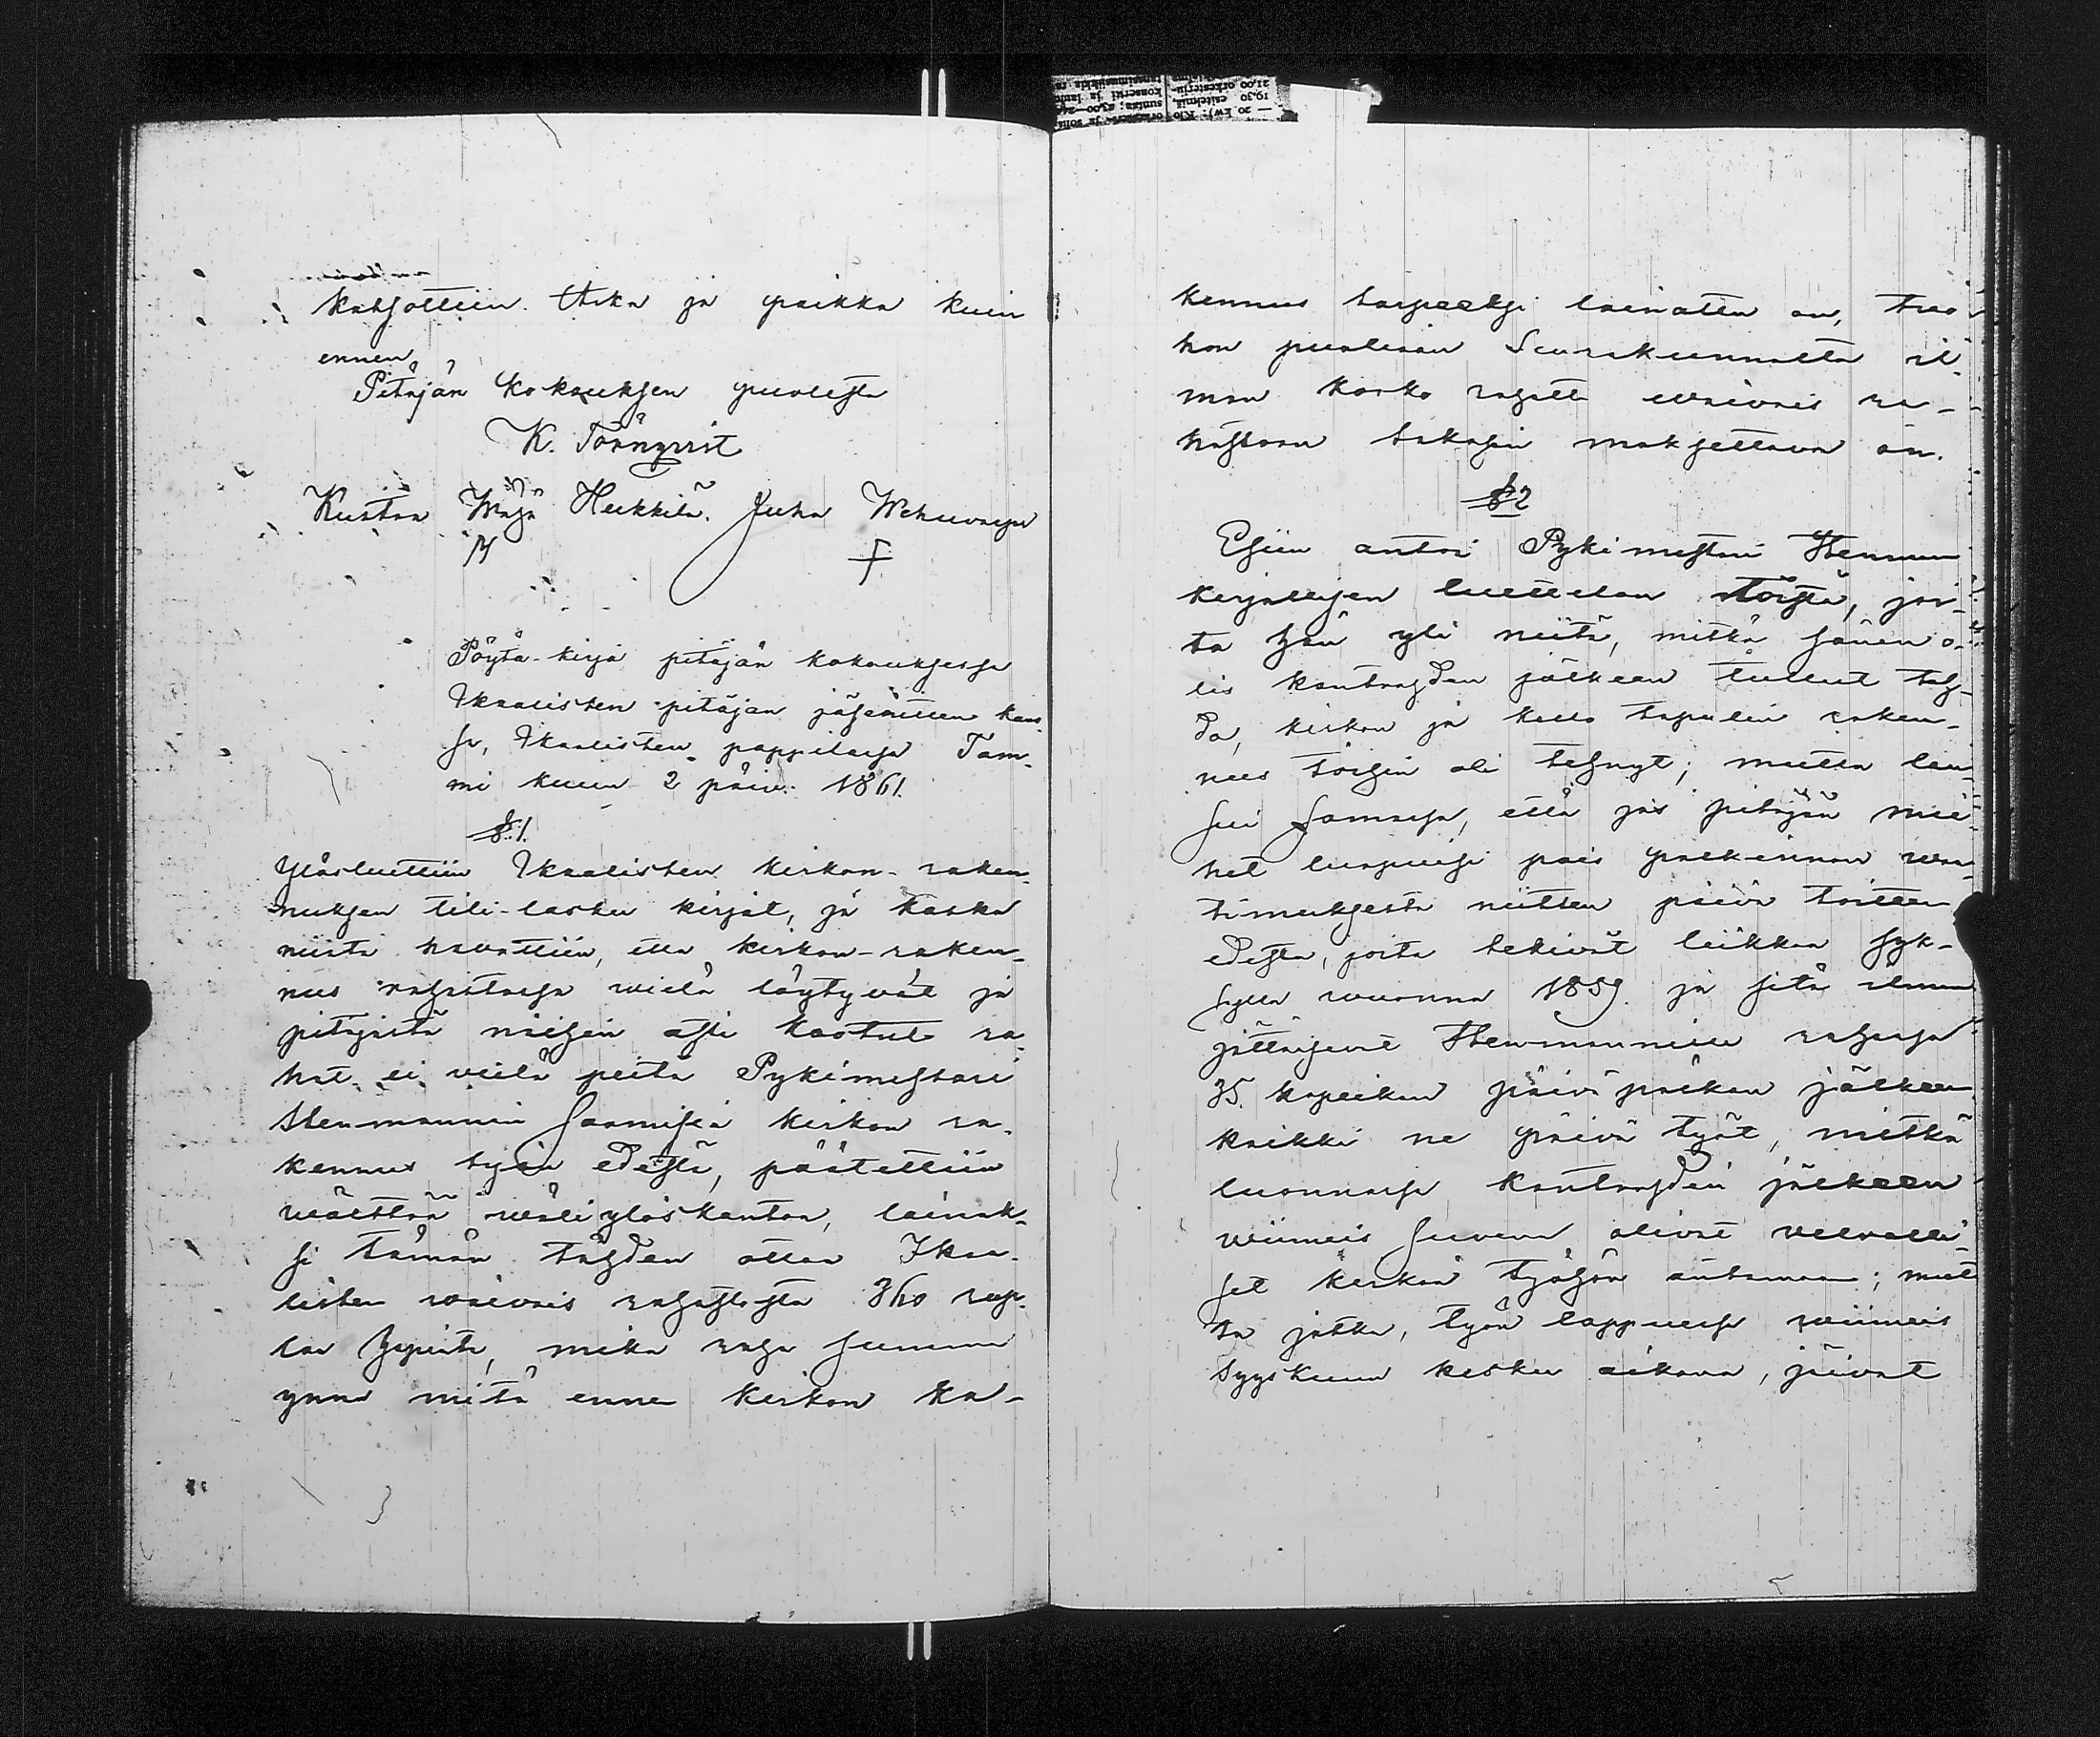 katsottiin. Aika ja paikka kuin
ennen.
Pitäjän kokouksen puolesta
K. Törnqvist
Kustaa Heikkilä. Juha
Pöytä-kirja pitäjän kokouksessa
Ikaalisten pitäjän jäsenitten kans-
sa, Ikaalisten pappilassa Tam-
mi kuun 2 päiv. 1861.
§ 1.
Ylösluettiin Ikaalisten kirkon-raken-
nuksen tili-lasku kirjat, ja koska
niistä havattiin, etta kirkon-raken-
nus rahastossa vielä löytyvät ja
pitäjästä näihin asti kootut ra-
hat ei vielä peitä Pykimestari
Stenmannin saamisia kirkon ra-
kennus työn edestä, päätettiin
väli ylöskantoa, lainak-
si tämän tähden ottaa Ikaa-
listen vaivais rahastosta 360 rup-
laa hopiata, mikä raha summa
ynnä mitä ennen kirkon Ra-
kennus tarpeeksi lainattu on,
hon puolisan Seurakunnalta il-
man korko rahatta vaivais ra-
hastoon takasin maksettava on.
§ 2
Esiin antoi Pykimestari Stenman
kirjallisen luettelon töistä, joi-
ta hän yli niitä, mitkä hänen o-
lis kontrahden jälkeen tullut teh-
dä, kirkon ja kello tapulin raken-
nus töihin oli tehnyt; mutta lau-
sui samassa, että jos pitäjän mie-
het luopuisi pois palkinnon vaa-
timuksesta niitten päivä töitten
edestä, joita tekivät liikkaa syk-
syllä vuonna 1859. ja sitä ilman
jättäisivät Stenmannin rahassa
35. kopeikan päivä palkan jälkeen
kaikki ne päivä työt, mitkä
luonnossa kontrahdin jälkeen
viimeis suvena olivat velvolli-
set kirkon työhön antamaan; mut-
ta jotka, työn loppuessa viimeis
syyskuun kesku aikana, jäivät